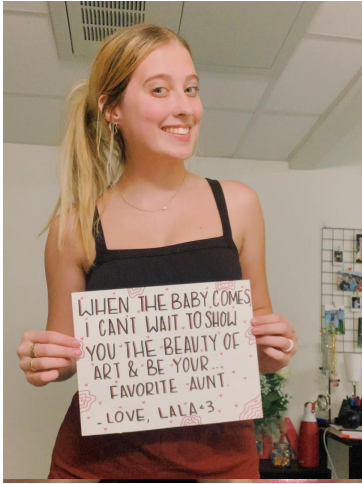 WHEN THE BABY COMES
I CANT WAIT TO SHOW
YOU THE BEAUTY OF
ART & BE YOUR...
FAVORITE AUNT.
- LOVE, LALA <3